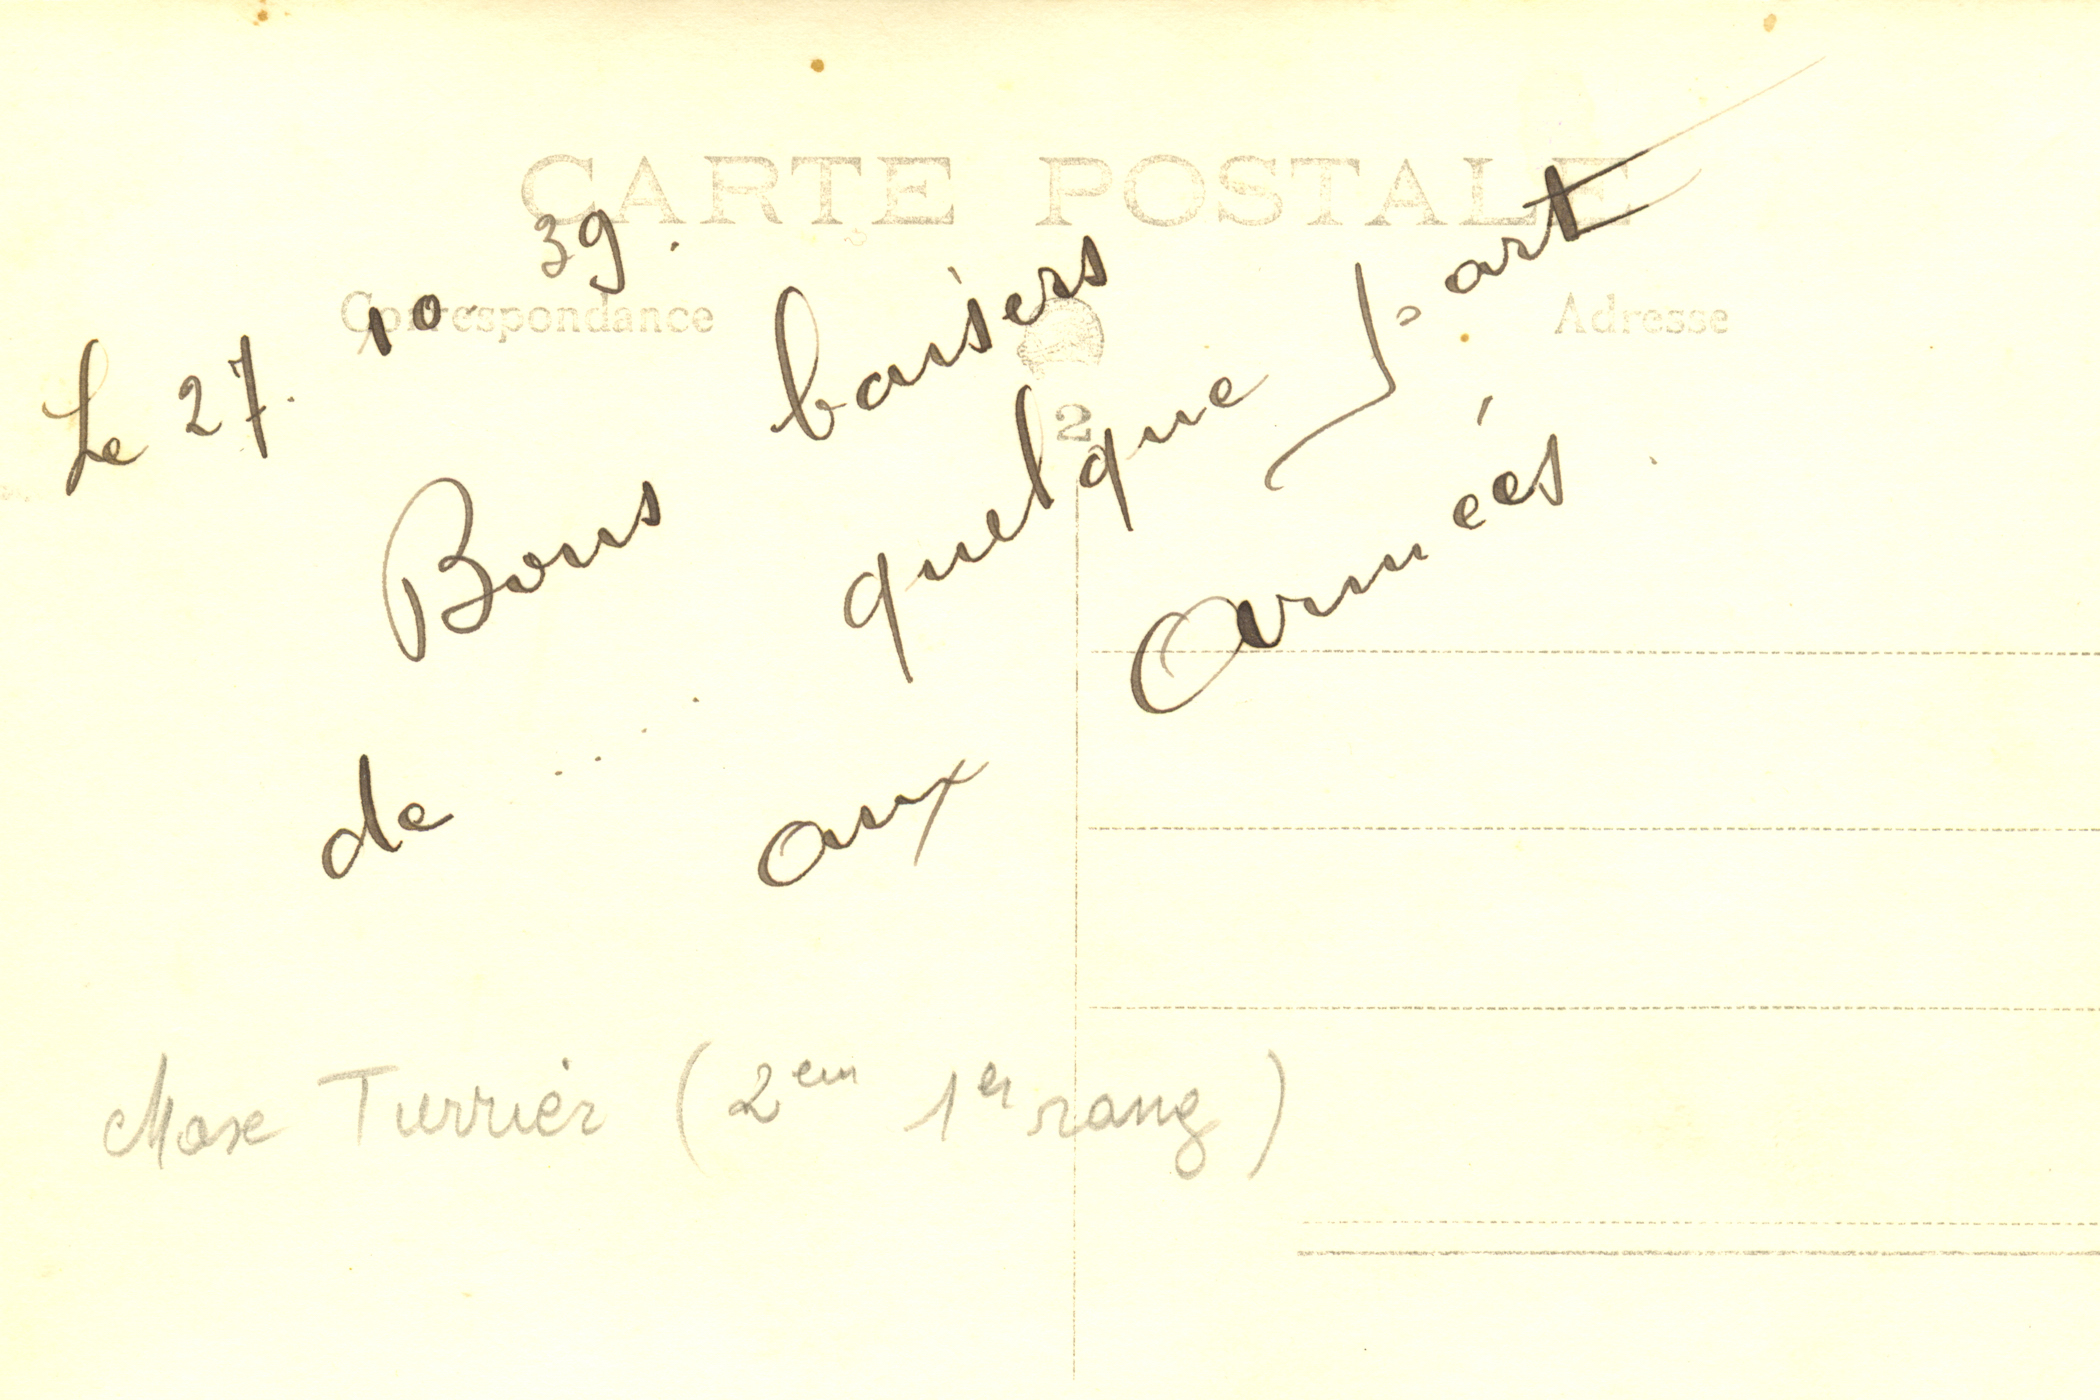 CARTE POSTALE
Correspondance
Adresse
2
Le 27. 10. 39.
Bons baisers
de .... quelque part
aux Armées.
Max Turrier (2em 1er rang)